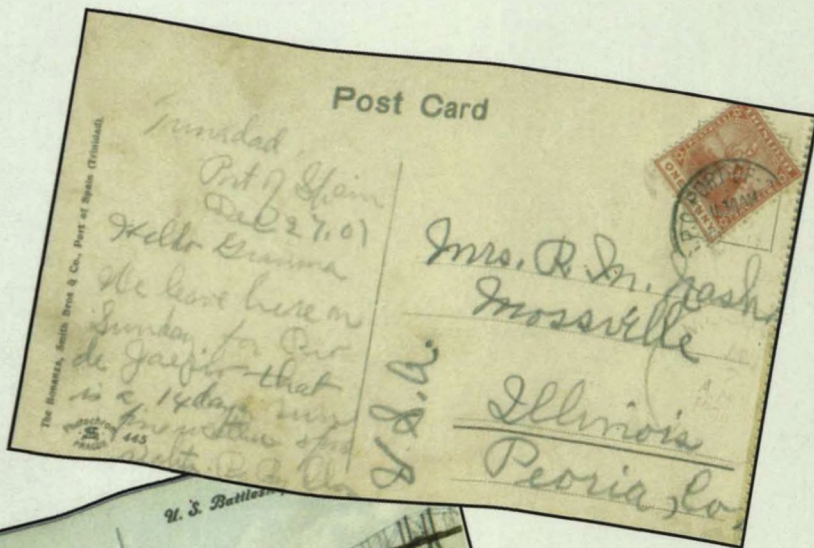 Post Card
The Bonanza, Smith Bros & Co., Port of Spain (Trinidad).
Trinidad,
Port of Spain
Dec 27, 07
Hello Gramma
We leave here on
Sunday for Rio
de Janeiro - that
is a 14 day run
445
PRAGUE
Mrs. R. M.
Mossville
Illinois
Peoria, Co,
U.S.A.
ONE
U. S. Battles